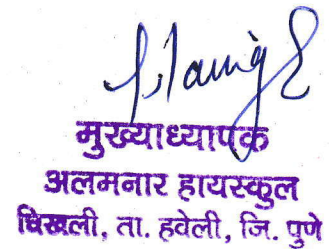 मुख्याध्यापक
अलमनार हायस्कुल
चिखली, ता. हवेली, जि. पुणे